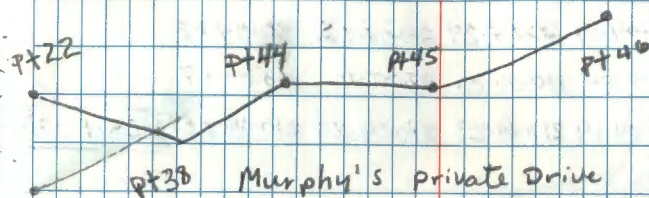 pt 22
pt 44
pt 45
pt 46
pt 38
Murphy's private Drive